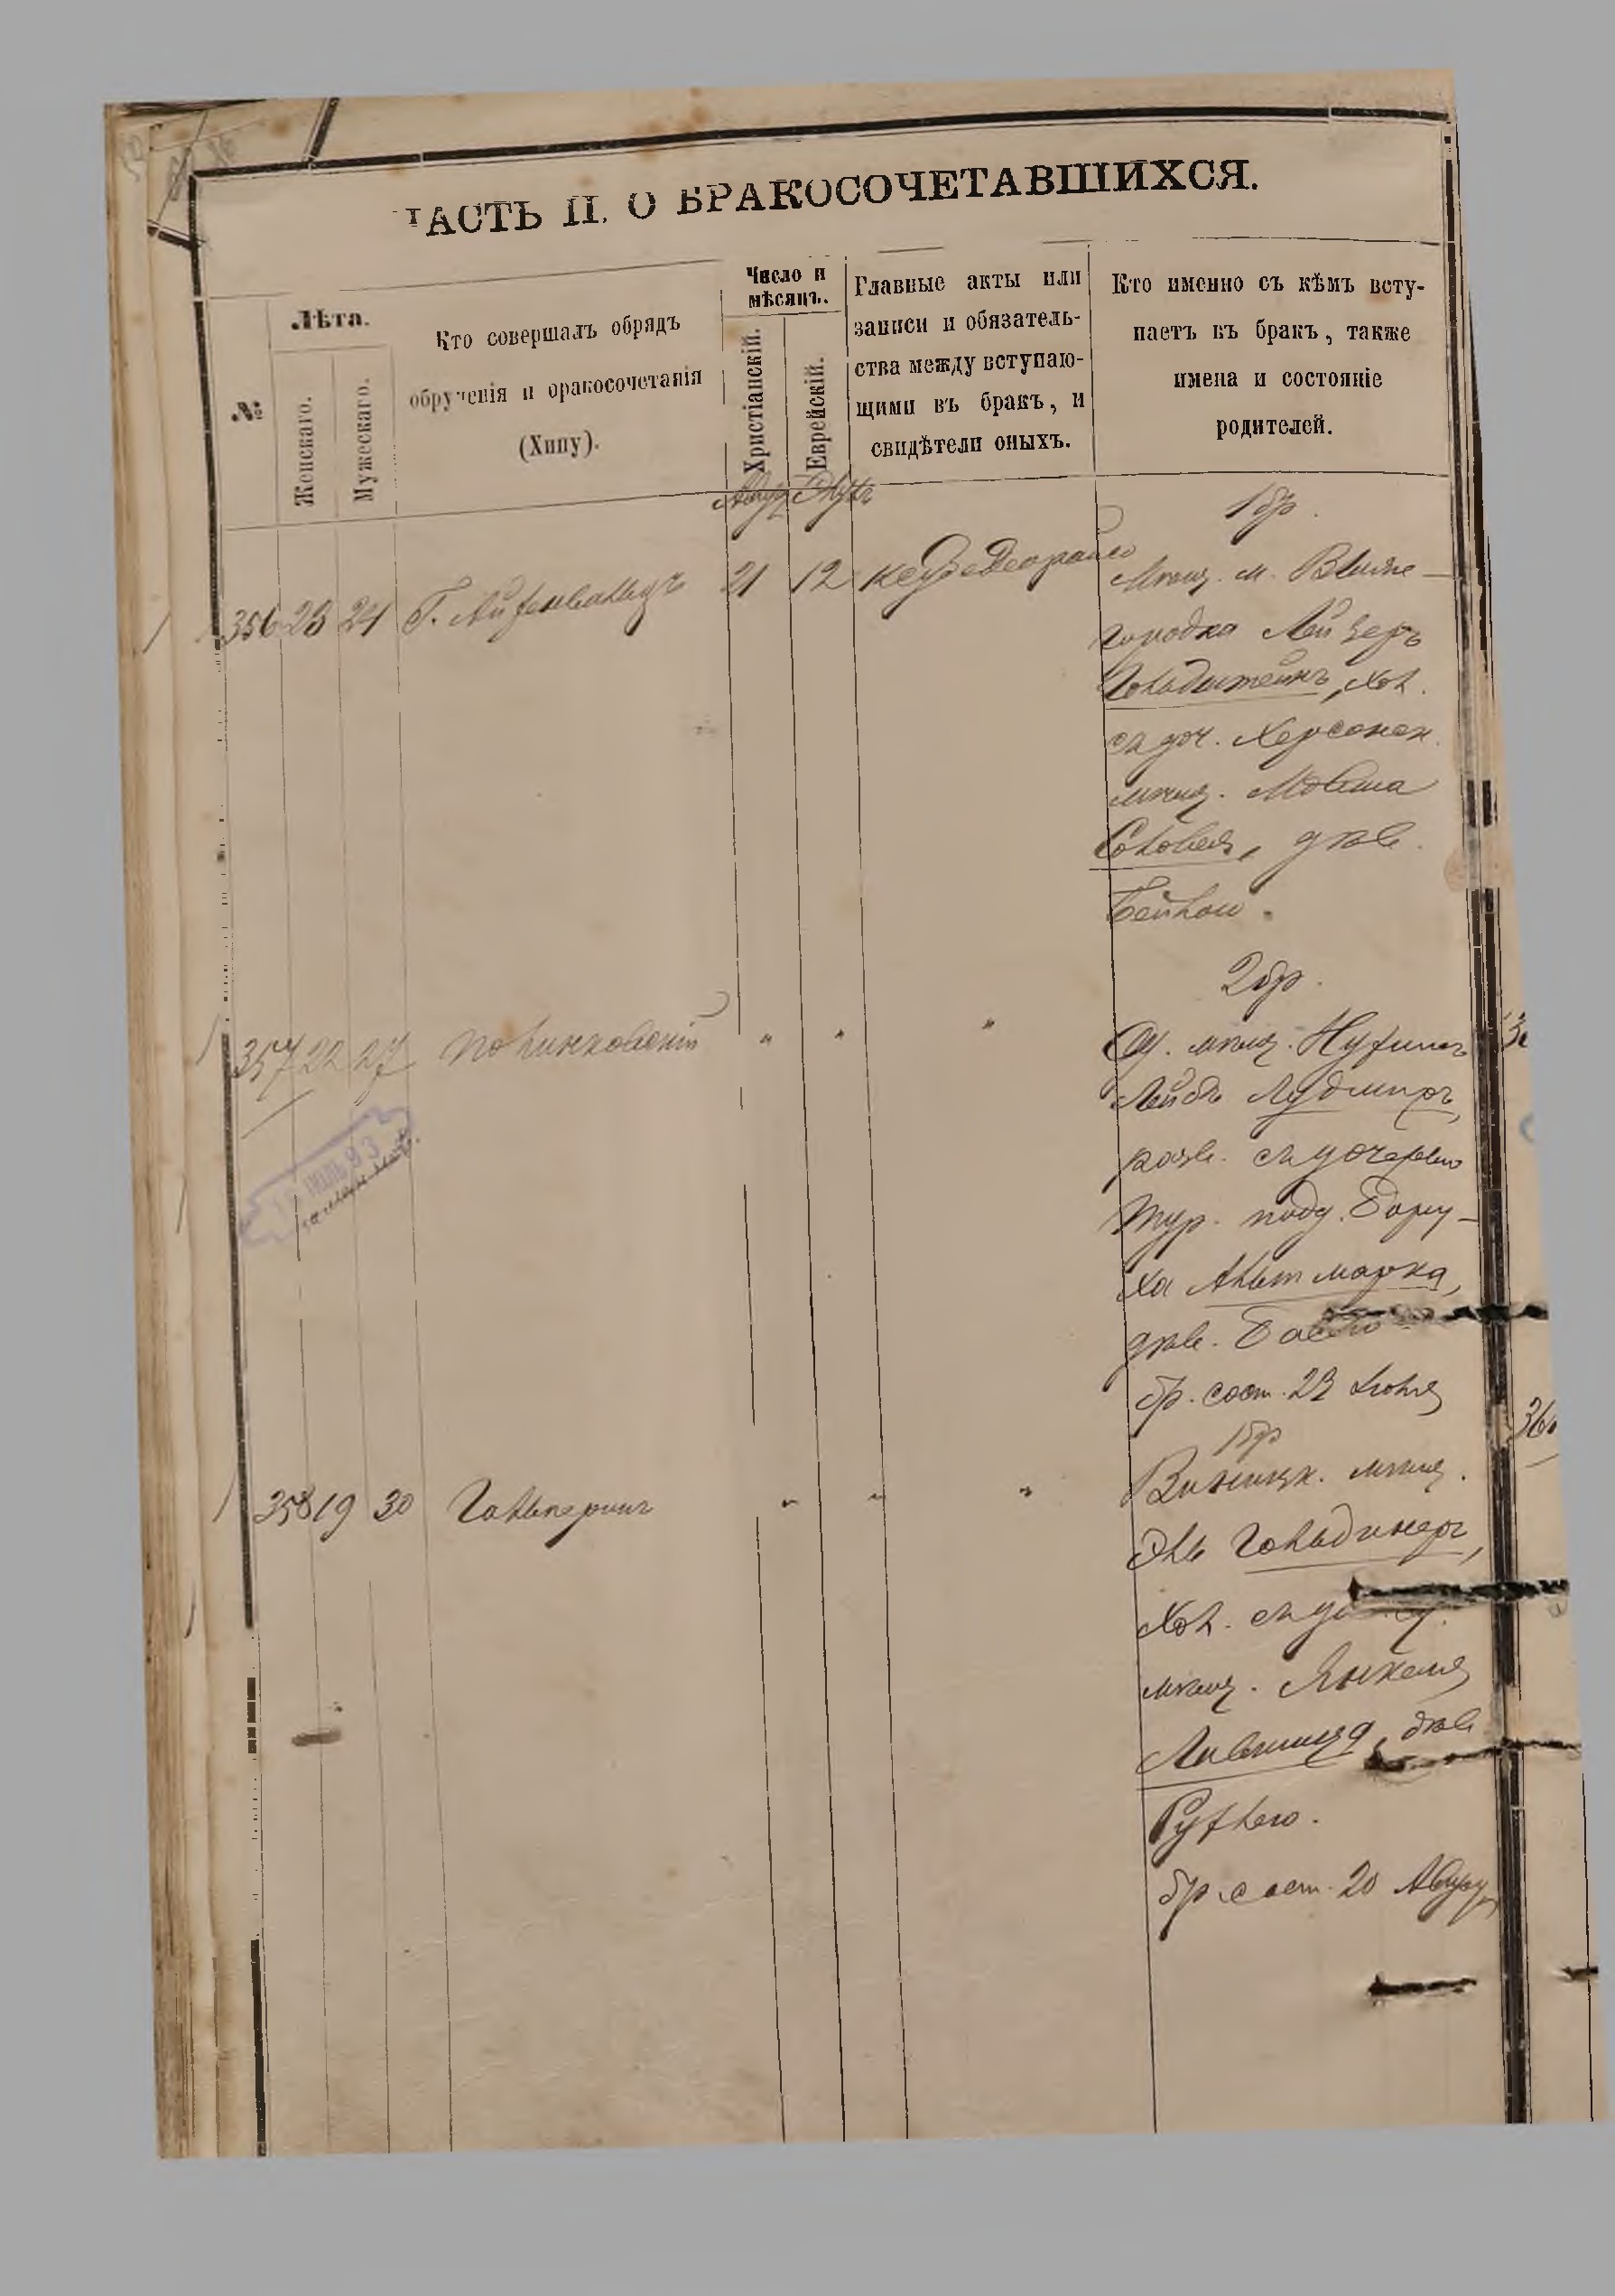 ЧАСТЬ II. О БРАКОСОЧЕТАВШИХСЯ.
№
Лѣта.
Женскаго.
Мужескаго.
Кто совершалъ обрядъ
обрученія и бракосочетанія
(Хипу).
Число и
мѣсяцъ.
Христіанскій.
Еврейскій.
Главные акты или
записи и обязатель-
ства между вступаю-
щими въ бракъ, и
свидѣтели оныхъ.
Кто именно съ кѣмъ всту-
паетъ въ бракъ, также
имена и состояніе
родителей.
1 бр.
356 23 24 Г. 21 12
Мѣщ. м.
городка Лейзеръ
Гольдштейнъ, хол.
съ доч. Херсонск.
мѣщ. Мовша
Соловея, дѣв.
Бейлою.
2 бр.
357 22 27 Полинковскій " " "
Од. мѣщ. Нухимъ
Лейбъ Лудмиръ,
разв. съ дочерью
Тур. подд. Бару-
ха Альтмарка,
дѣв.
бр. сост. 23 Іюля
1 бр
358 19 30 Гальперинъ " " "
Винницк. мѣщ.
Эль Гольдинеръ,
Хол. съ
мѣщ. Янкеля
Лившица, дѣв
Рухлею.
бр. сост. 20 Авгу